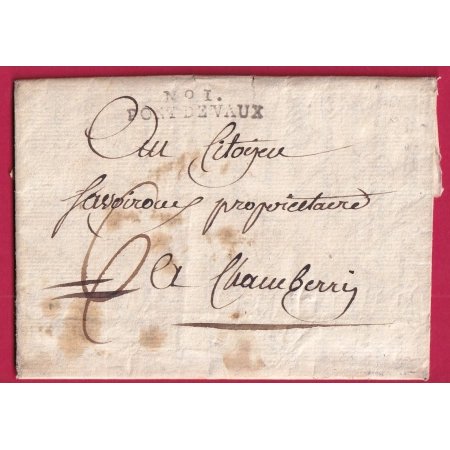 No 1.
PONT DE VAUX
Au Citoyen
favoirous propriettaire
6 A Chamberri